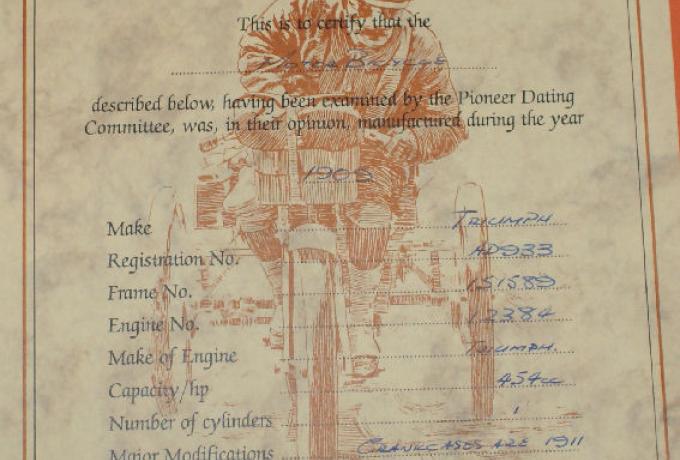 This is to certify that the
MOTOR BICYCLE
described below, having been examined by the Pioneer Dating
Committee, was, in their opinion, manufactured during the year
1909
Make TRIUMPH
Registration No. AD933
Frame No. 151589
Engine No. 12384
Make of Engine TRIUMPH.
Capacity/hp 454cc
Number of cylinders 1
Major Modifications CRANKCASES ARE 1911